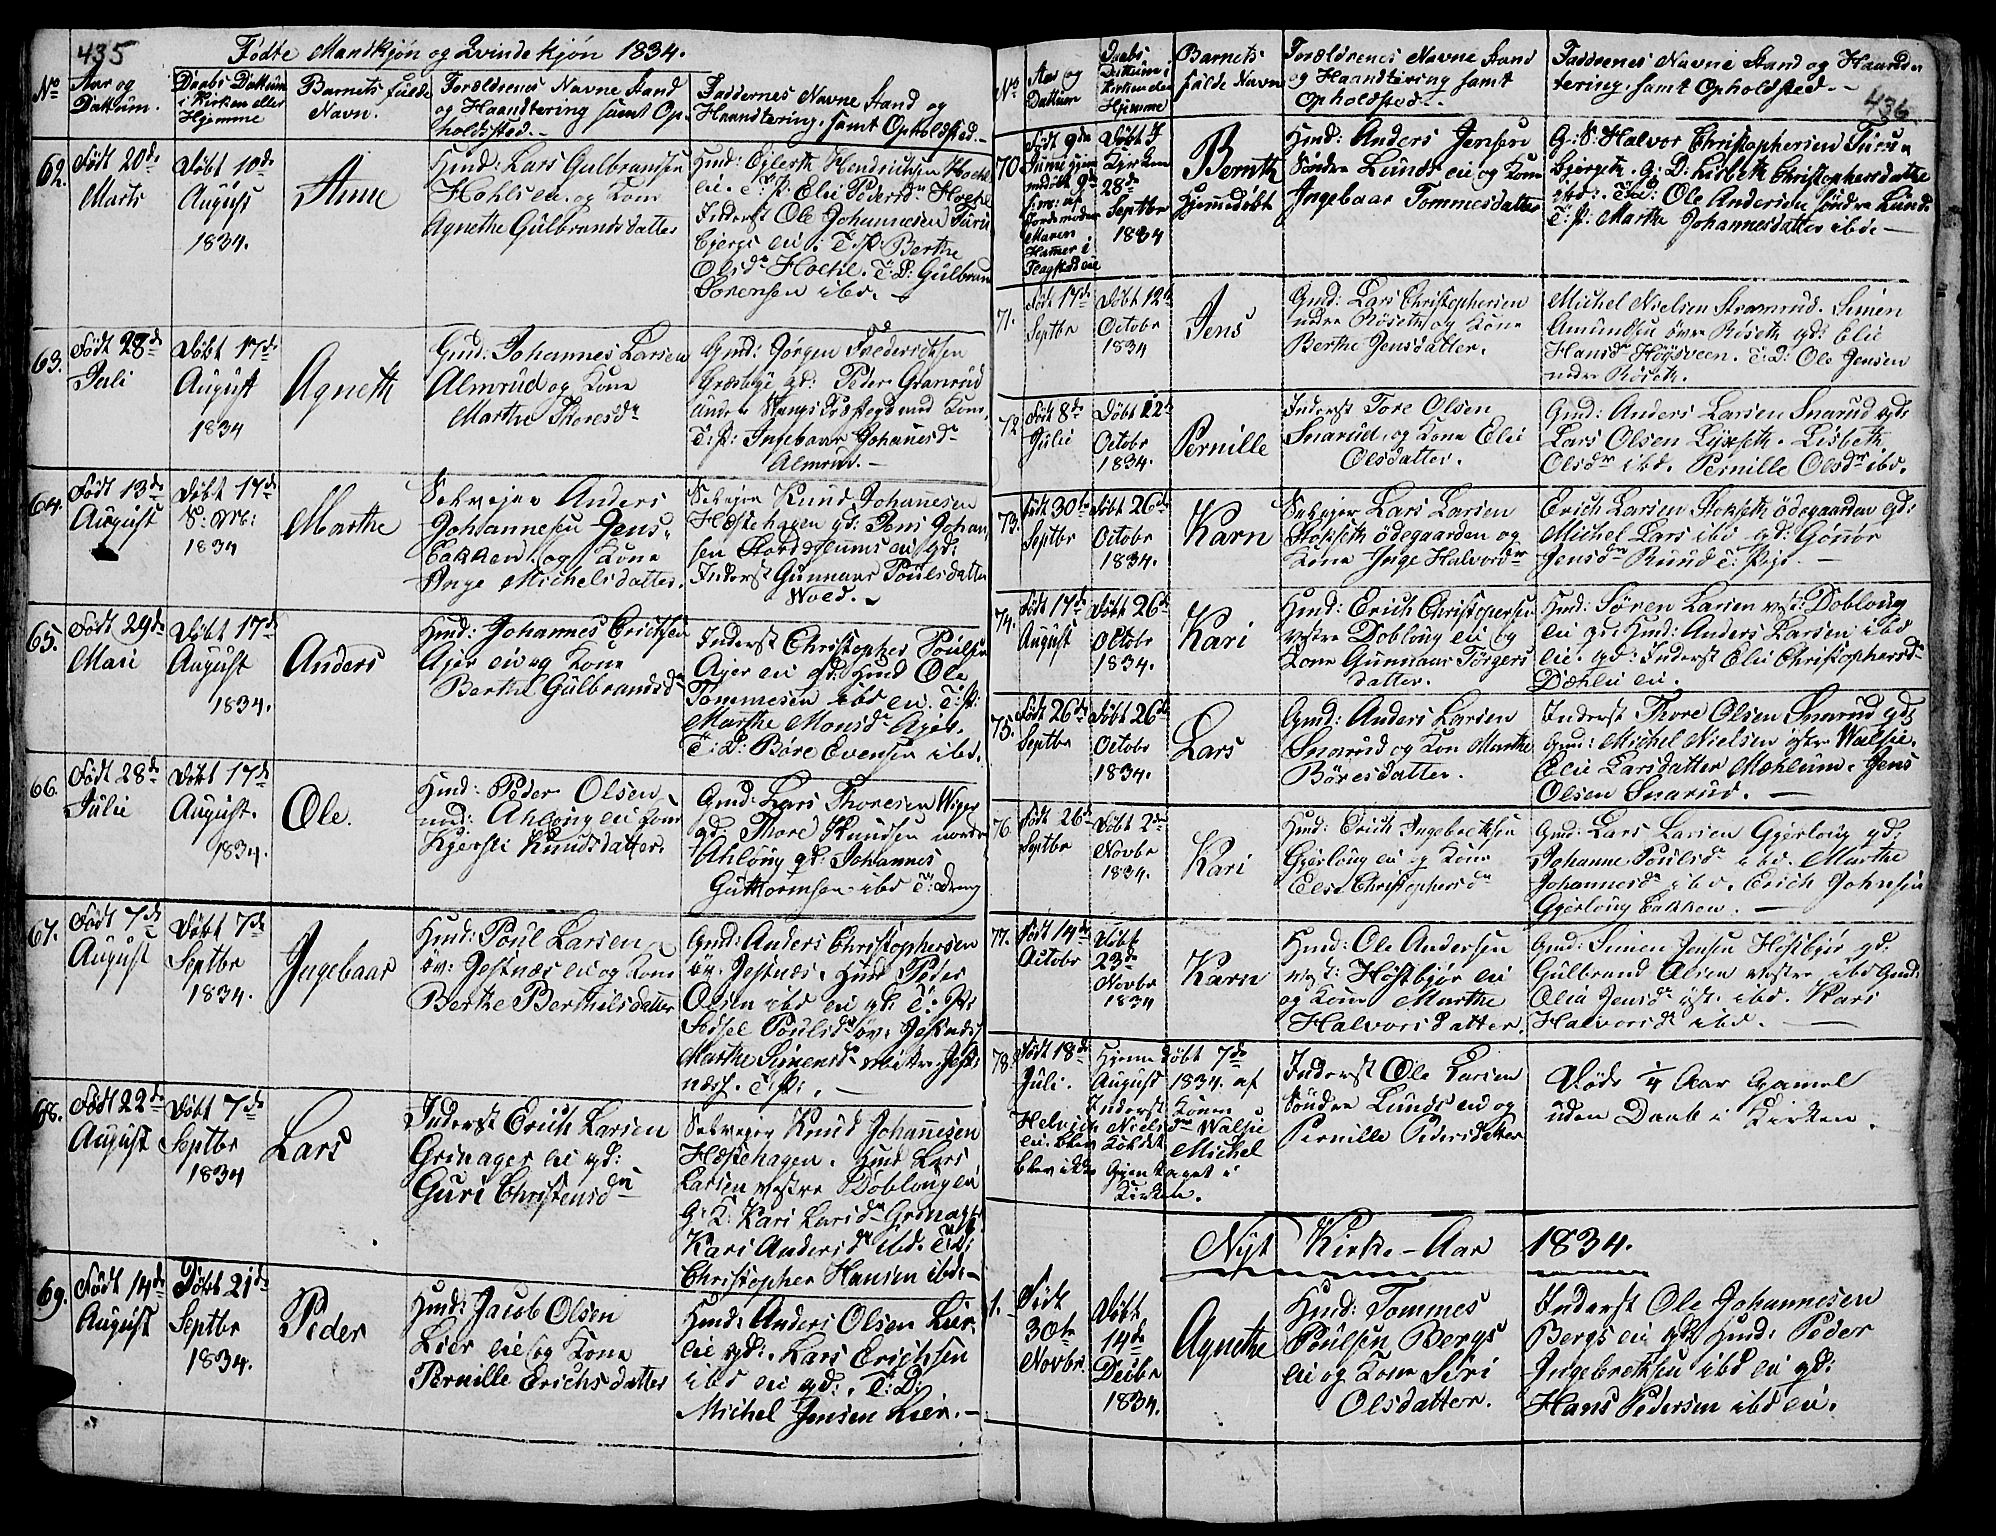 435
Födte Mandkjön og Qvindekjön 1834.
No
Aar og
Dattum.
Daabs Dattum
i Kirken eller
Hjemme
Barnets fulde
Navn.
Forældrenes Navne Stand
og Haandtering samt Op-
holdsted.
Faddernes Navne Stand og
Haandtering, samt Opholdsted.
62.
Födt 20de
Marts
Döbt 10de
August
1834.
Anne
Hmd: Lars Gulbrandsen
Hohls eie og Kone
Agnethe Gulbrandsdatter
Hmd: Ejlerth Hendrichsen Hoehl
eie. T. P. Elie Pedersdr Hoehl
Inderst Ole Johannesen Furu
bjergs eie. T. P: Berthe
Olsdr Hoehl. T. D: Gulbrand
Sorensen ibd.
63.
Födt 28de
Juli
Döbt 17de
August
1834
Agneth
Gmd: Johannes Larsen
Almrud og Kone
Marthe Thoresdr
Gmd: Jörgen Frederichsen
Græsbye gd: Peder Granrud
under Vangs Præstegd med Kone.
T: P: Ingebaar Johanesdr
Almrud.
64.
Födt 13de
August
Döbt 17de
S: M:
1834
Marthe
Selvejer Anders
Johannesen Jens-
bakken og Kone
Inge Michelsdatter.
Selvejer Knud Johannesen
Hestehagen gd: Jens Johan
sen Stordslums eie gd:
Inderst Gunnaar Poulsdatter
Wold.
65.
Födt 29de
Mai
Döbt 17de
August
1834.
Anders
Hmd: Johannes Erichsen
Ajer eie og Kone
Berthe Gulbrandsdr
Inderst Christopher Poulsen
Ajer eie gd: Hmd Ole
Tommesen ibd eie. T: P:
Marthe Monsdr Ajer.
T: D: Böre Evensen ibd.
66.
Födt 28de
Julie
Döbt 17de
August.
1834.
Ole.
Hmd: Peder Olsen
ned: Ahlöug eie Kone
Kjersti Knudsdatter.
Gmd: Lars Thoresen
gd: Thore Knudsen nordre
Ahlöug gd: Johannes
Guttormsen ibd T: Dreng
67.
Födt 7de
August
Döbt 7de
Septbr
1834.
Ingebaar
Hmd: Poul Larsen
öv: Jestnæs eie og Kone
Berthe Berthelsdatter
Gmd: Anders Christophersen
öv: Jestnæs. Hmd Peder
Olsen ibd eie gd T: P:
Sidsel Poulsdr öv: Jestnæs
Marthe Simensdr Jest
næss. T: P:
68.
Födt 22de
August
Döbt 7de
Septbr
1834
Lars
Inderst Erich Larsen
Grinager eie gd:
Guri Christensdr
Selvejer Knud Johannesen
Hestehagen. Hmd Lars
Larsen vestre Döblouge
G: K: Kari Larsdr Grinager
Kari Andersdr ibd. T: D:
Christopher Hansen ibd.
69.
Födt 14de
August
Döbt 21de
Septbr
1834.
Peder
Hmd: Jacob Olsen
Lier eie og Kone
Pernille Erichsdatter
Hmd: Anders Olsen Lier
eie gd: Lars Erichsen
ibd eie gd: T: D:
Michel Jensen Lier.
436.
No
Aar og
Dattum
Daabs
Dattum i
Kirken eller
Hjemme
Barnets
fulde Navn
Forældrenes Navne Stand
og Haandtering samt
Opholdsted.
Faddernes Navne Stand og Haand-
tering, samt Opholdsted.
70
Födt 9de
Juni hjem
medöbt 9de
af
Jordemoder
Maren
Hamer i
eie
Döbt i
Kirken
28de
Septbr
1834
Bernth
hjemmedöbt
Hmd: Anders Jensen
Söndre Lunds eie og Kone
Ingebaar Tommesdatter
G: S: Halvor Christophersen Furu-
bjergeth. G: D: Lisbeth Christophersdatter
ibd: T: D: Ole Andersen söndre Lund.
T: P: Marthe Johannesdatter ibd.
71.
Födt 17de
Septbr
Döbt 12te
Octobr
1834
Jens
Gmd: Lars Christophersen
nedre Röseth og Kone
Berthe Jensdatter.
Michel Nielsen Stramrud. Simen
Amundsen övre Röseth gd: Elie
Hansdr Höjsveen. T: D: Ole Jensen
nedre Röseth.
72
Födt 8de
Julie
Döbt 12te
Octobr
1834.
Pernille
Inderst Tore Olsen
Snarud, og Kone Elie
Olsdatter.
Gmd: Anders Larsen Snarud gd:
Lars Olsen Lixseth. Lisbeth
Olsdr ibd. Pernille Olsdr ibd.
73.
Födt 30te
Septbr
Döbt 26de
Octobr
1834.
Karn
Selvejer Lars Larsen
Stokseth ödegaarden og
Kone Inge Halvorsdr
Erich Larsen Stokseth ödegaarden gd:
Michel Lars ibd gd: Gönnor
Jensdr Rund T: Pige
74.
Födt 17de
August
Döbt 26de
Octobr
1834.
Kari
Hmd: Erich Christophersen
vestre Doblouge eie og
Kone Gunnaar Törgers
datter.
Hmd: Sören Larsen vest: Doblouge
eie gd: Hmd: Anders Larsen ibd
eie. gd: Inderst Elie Christophersdr
Dæhlie eie.
75.
Födt 26de
Septbr
Döbt 26de
Octobr
1834.
Lars
Gmd: Anders Larsen
Snarud og Kone Marthe
Böresdatter.
Inderst Thore Olsen Snarud gd:
Gmd: Michel Nielsen öfre Walsie.
Elie Larsdatter Mæhlum. Jens
Olsen Snarud.
76.
Födt 26de
Septbr
Döbt 2de
Novbr
1834.
Kari
Hmd: Erich Ingebrethsen
Gjerloug eie og Kone
Else Christophersdr
Gmd: Lars Larsen Gjerloug gd:
Johanne Poulsdr ibd. Marthe
Johannesdr ibd. Erich Johnsen
Gjerlougbakken.
77.
Födt 14de
Octobr
Döbt
23de
Novbr
1834
Karn
Hmd: Ole Andersen
vest: Höstbjör eie
og Kone Marthe
Halvorsdatter.
Gmd: Simen Jensen Höstbjör gd:
Gulbrand Olsen vestre ibd Gmd:
Olia Jensdr öst. ibd. Kari
Halvorsdr ibd.
78.
Födt 18de
Juli.
Hjemmedöbt 7de
August 1834. af
Inderst Konen
Helvich Nielsdr Walsie
eie. blev Kaldet Michel
blev ikke Igjentaget i
Kirken.
Inderst Ole Larsen
Söndre Lunds eie og
Pernille Pedersdatter
Döde 1/4 Aar Gamel
uden Daab i Kirken.
Nyt Kirke-Aar 1834.
1.
Födt
30te
Novbr.
Döbt
14de
Decbr
1834.
Agnethe
Hmd: Tommes
Poulsen Bergs
eie og Kone Siri
Olsdatter.
Inderst Ole Johannesen
Bergs eie gd: Hmd: Peder
Ingebrethsen ibd eie gd:
Hans Pedersen ibd eie.